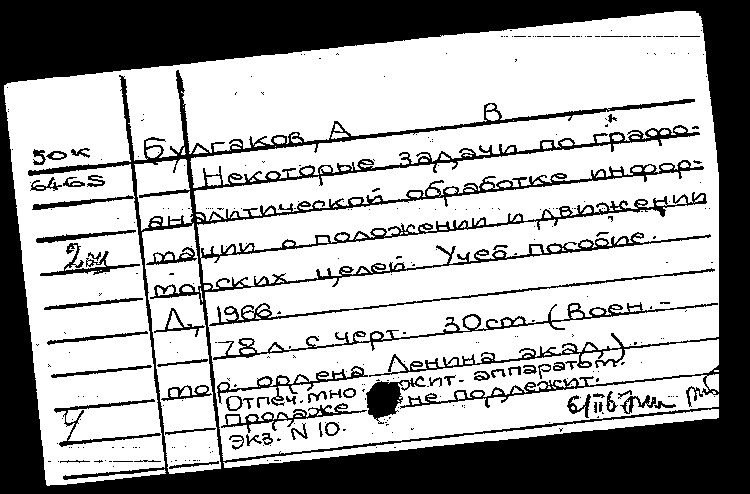 50к Булгаков, А В
6465 Некоторые задачи по графо-
аналитической обработке инфор-
2 эк мации о положении и движении
морских целей. Учеб. пособие.
Л., 1966.
78 л. с черт. 30см. (Воен.-
мор. ордена Ленина акад.)
Отпеч. мно жит. аппаратом.
Продаже не подлежит.
Экз. N 10.